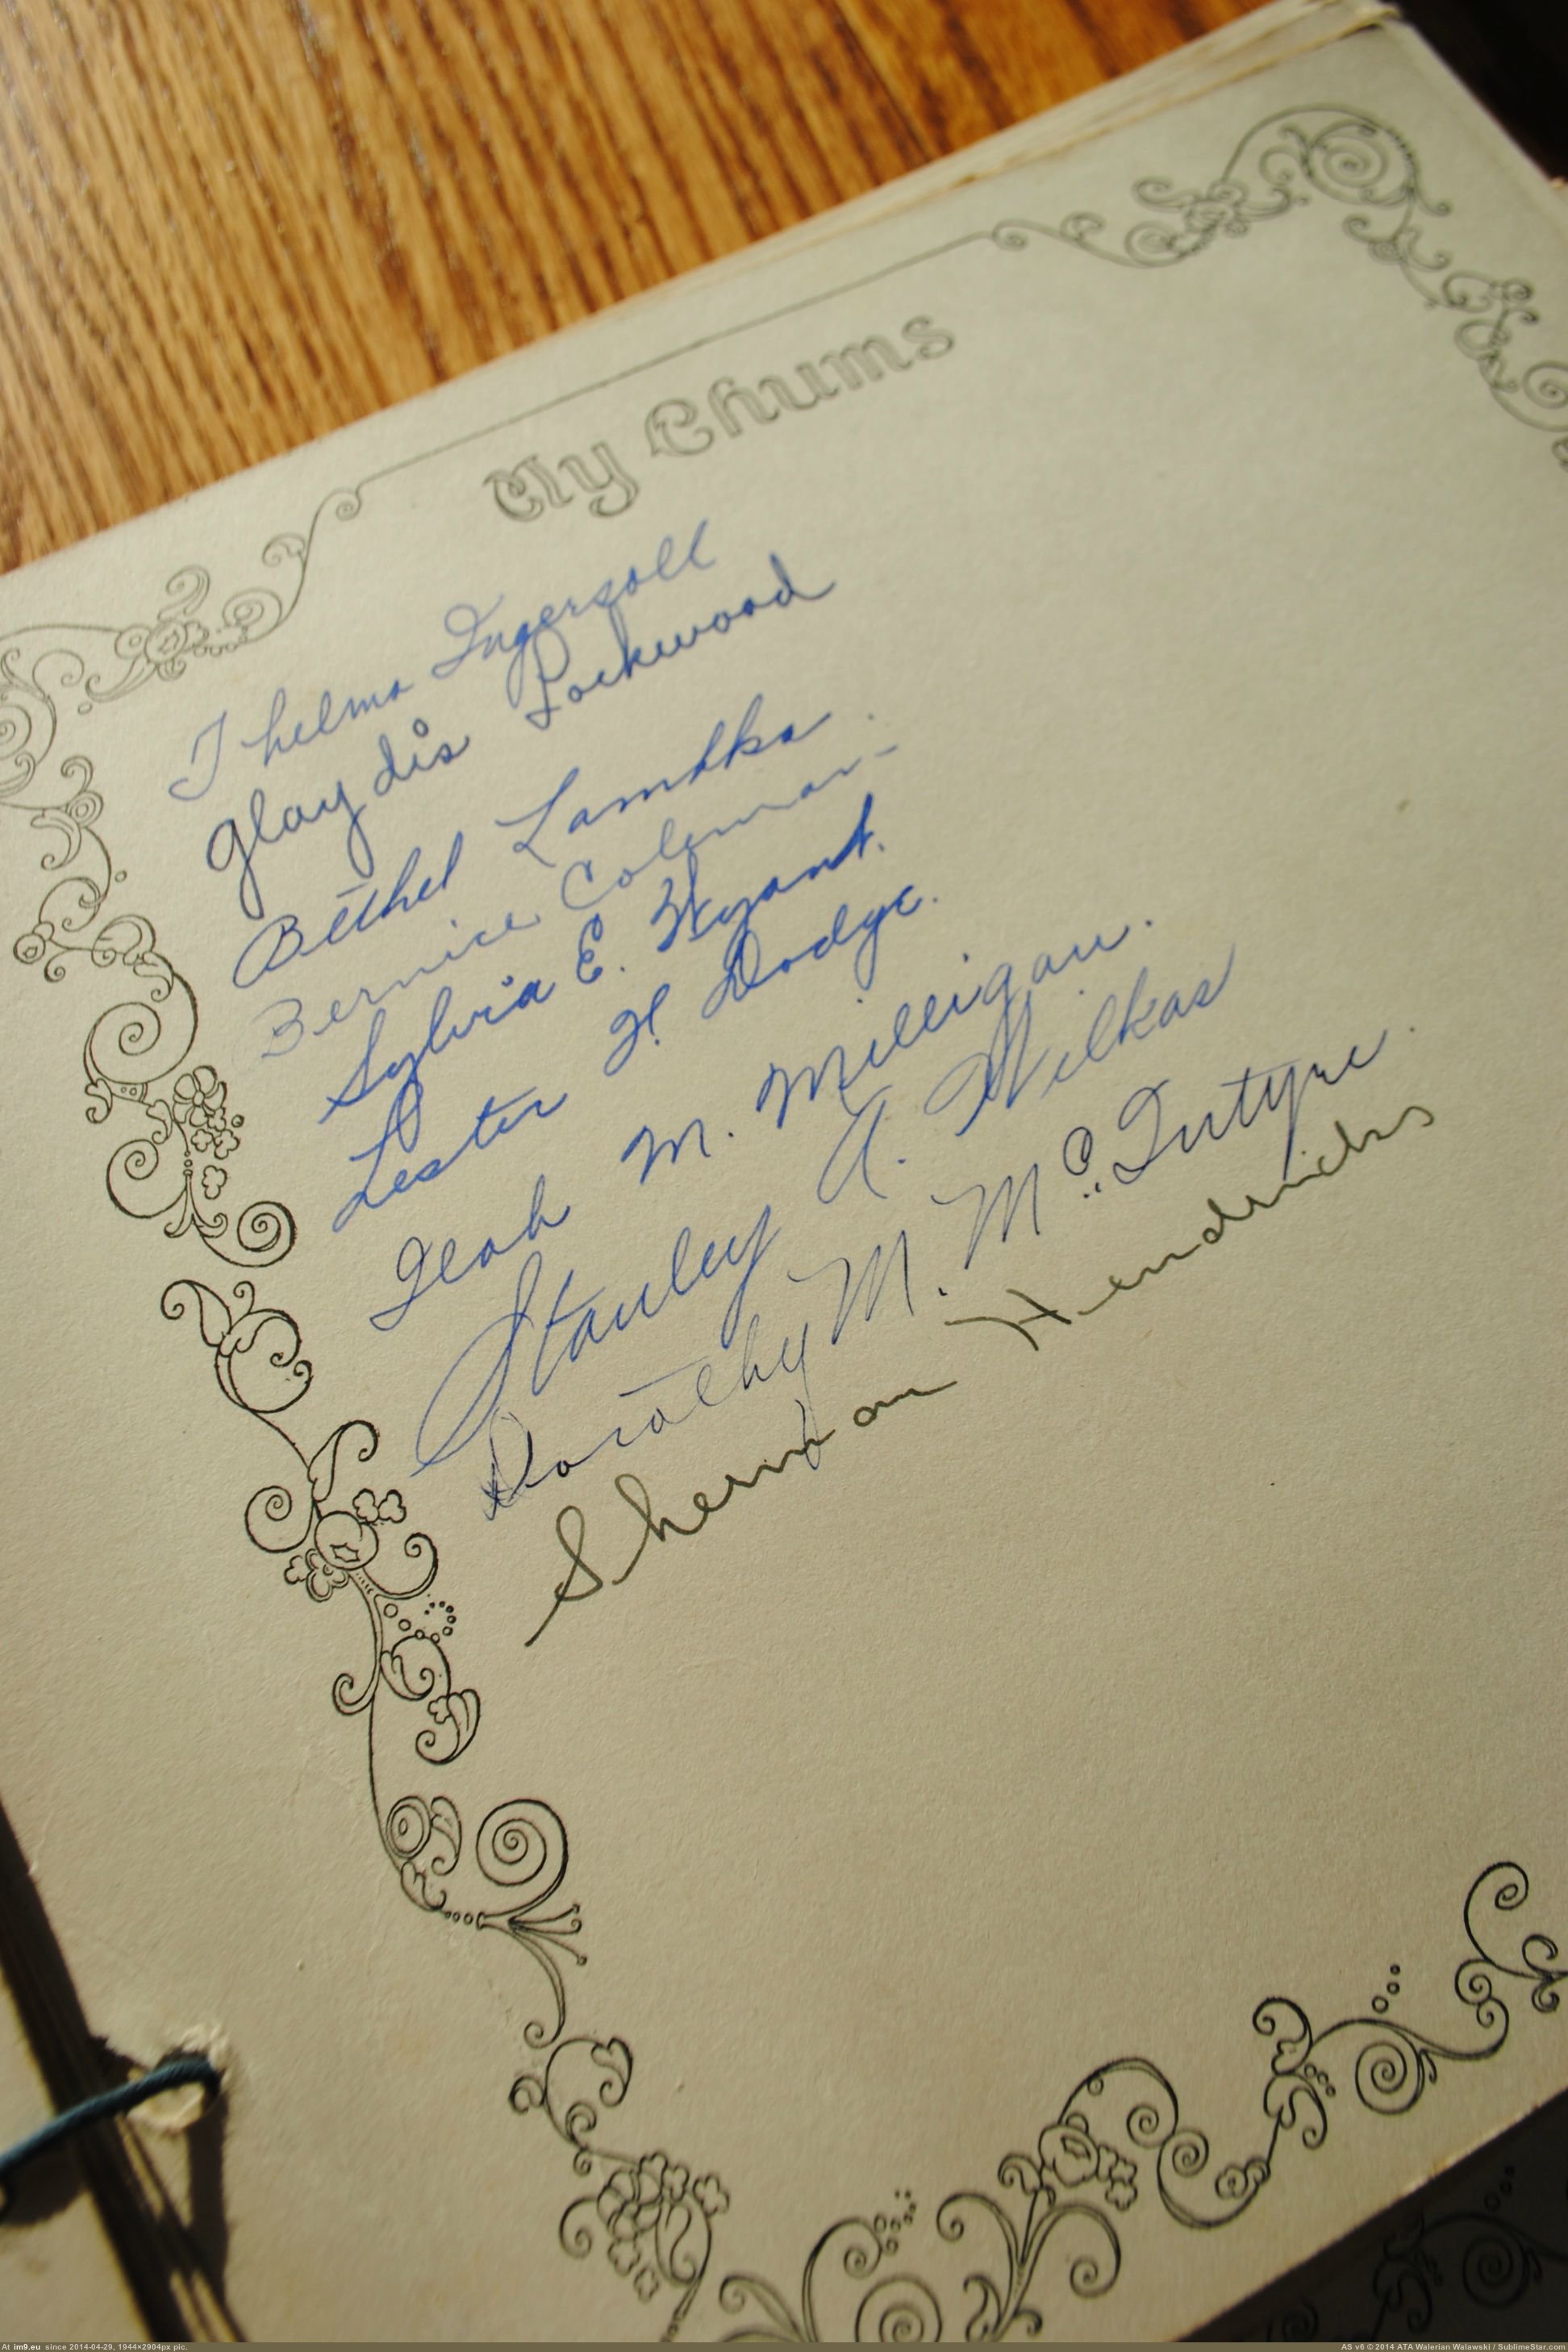 My Chums
Thelma Ingersoll
Glaydis Lockwood
Bethel Lambka
Bernice Coleman
Sylvia E. Wyant.
Lester H Dodge.
Leah M. Milligan.
Stanley A. Wilkas
Dorothy M. Mc.Intyre.
Sherman Hendricks
At im9.eu since 2014-04-29, 1944×2904px pic.
AS v6 © 2014 ATA Walerian Walawski / SublimeStar.com